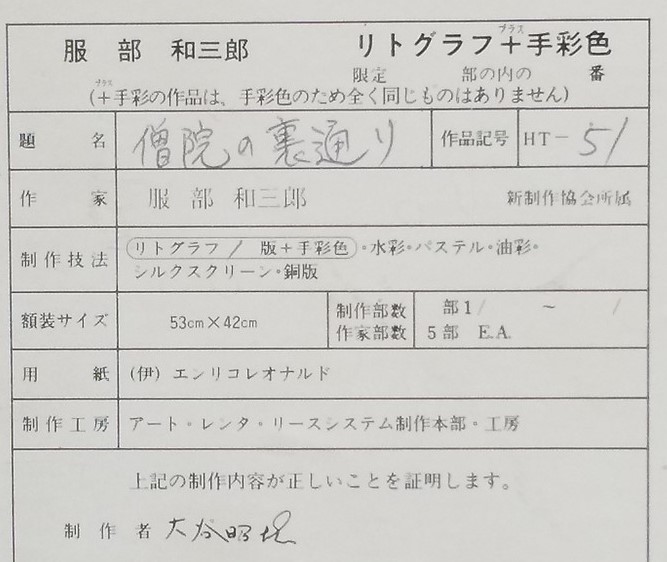 服部 和三郎 リトグラフ+手彩色
プラス
限定 部の内の 番
プラス
(+手彩の作品は、手彩色のため全く同じものはありません)
題名 僧院の裏通り 作品記号 HT-51
作家 服部 和三郎 新制作協会所属
制作技法 リトグラフ / 版+手彩色・水彩・パステル・油彩・
シルクスクリーン・銅版
額装サイズ 53cm×42cm 制作部数 部1/ ~ /
作家部数 5部 E.A.
用紙 (伊) エンリコレオナルド
制作工房 アート・レンタ・リースシステム制作本部・工房
上記の制作内容が正しいことを証明します。
制作者 大谷昭